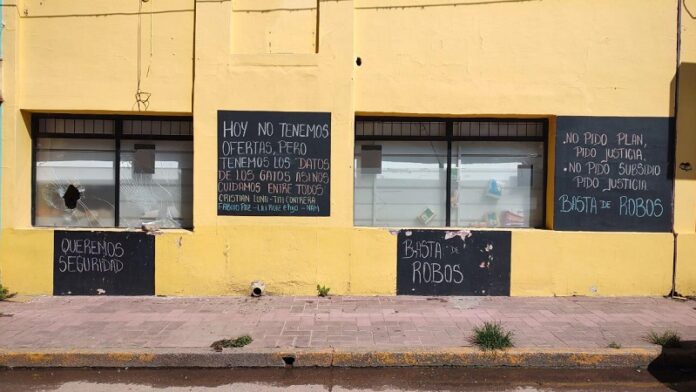 HOY NO TENEMOS
OFERTAS, PERO
TENEMOS LOS DATOS
DE LOS GATOS ASI NOS
CUIDAMOS ENTRE TODOS
CRISTIAN LUNA - TITI CONTRERA
FABRICIO PAZ - LALI RUIZ e hijo - NAM
QUEREMOS
SEGURIDAD
BASTA DE
ROBOS
.NO PIDO PLAN,
PIDO JUSTICIA.
• NO PIDO SUBSIDIO
PIDO JUSTICIA
BASTA DE ROBOS